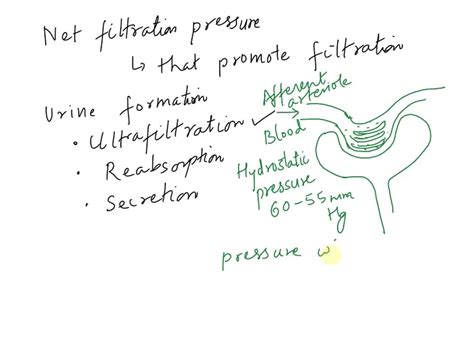 Net filtration pressure
↳ that promote filtration
Urine formation
• Ultrafiltration ✓
• Reabsorption
• Secretion
Afferent
arteriole
Blood
Hydrostatic
pressure
60-55 mm
Hg
pressure w